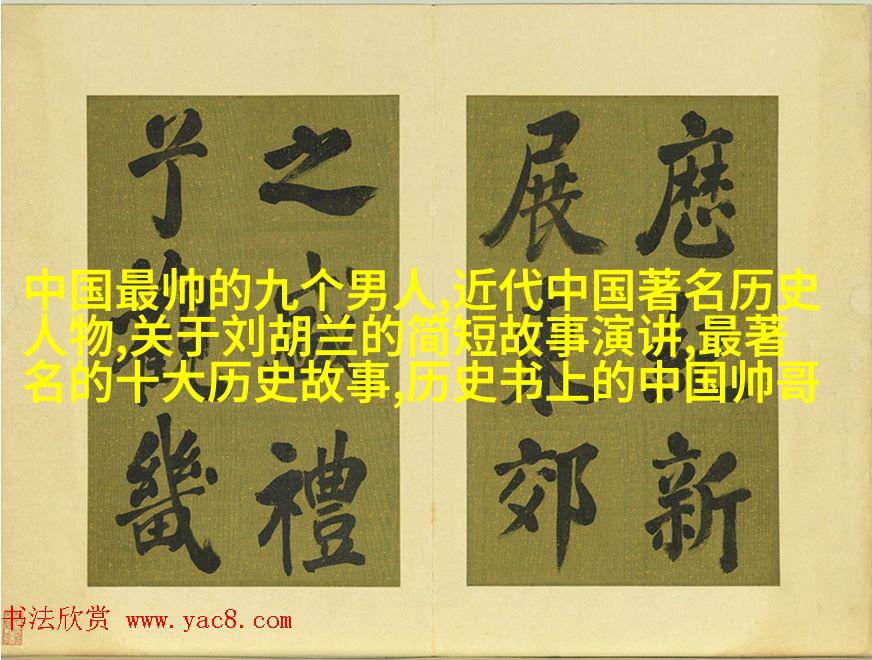 中国最帅的九个男人,近代中国著名历史
人物,关于刘胡兰的简短故事演讲,最著
名的十大历史故事,历史书上的中国帅哥
歷新
展東郊
之盛禮
觀畿
书法欣赏 www.yac8.com